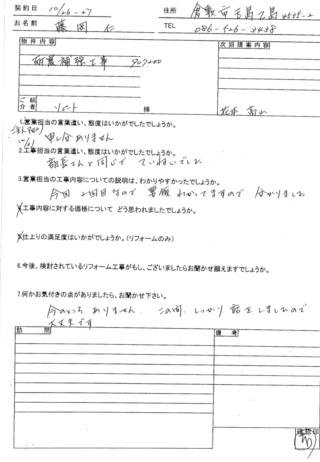 契約日 10/26-27
住所 倉敷市玉島乙島4535-2
お名前 藤岡 仁
TEL 086-526-3458
物件内容
次回提案内容
耐震補強工事
ご紹介者 リピート 様
1.営業担当の言葉遣い、態度はいかがでしたでしょうか。
申し分ありません
2.工事担当の言葉遣い、態度はいかがでしたでしょうか。
部長さんと同じで ていねいでした
3.営業担当の工事内容についての説明は、わかりやすかったでしょうか。
今回 2回目なので 要領 わかってますので 分かりました
4.工事内容に対する価格について どう思われましたでしょうか。
5.仕上りの満足度はいかがでしょうか。(リフォームのみ)
6.今後、検討されているリフォーム工事がもし、ございましたらお聞かせ願えますでしょうか。
7.何かお気付きの点がありましたら、お聞かせ下さい。
今のところ ありません. この間. しっかり 話をしましたので
大丈夫です
訪問
備考
確認印